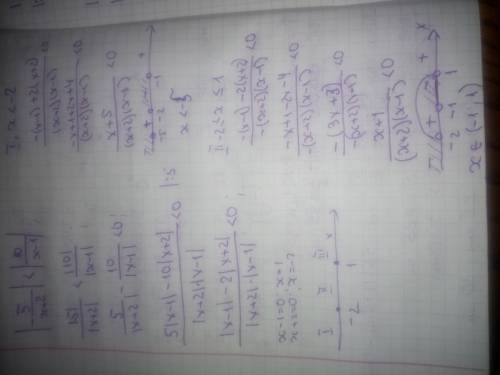 |-5/(x+2)| < |10/(x-1)|
|5|/|x+2| < |10|/|x-1|
5/|x+2| - 10/|x-1| < 0
(5|x-1| - 10|x+2|)/(|x+2|·|x-1|) < 0 | :5
(|x-1| - 2|x+2|)/(|x+2|·|x-1|) < 0
x-1=0; x=1
x+2=0; x=-2
I II III x
-2 1
I. x < -2
(-(x-1)+2(x+2))/((x+2)(x-1)) < 0
(-x+1+2x+4)/((x+2)(x-1)) < 0
(x+5)/((x+2)(x-1)) < 0
x < -5
II -2 ≤ x ≤ 1
(-(x-1)-2(x+2))/(-(x+2)(x-1)) < 0
(-x+1-2x-4)/(-(x+2)(x-1)) < 0
-(3x+3)/(-(x+2)(x-1)) < 0
(x+1)/((x+2)(x-1)) < 0
-2 -1 1 x
x ∈ (-1; 1)